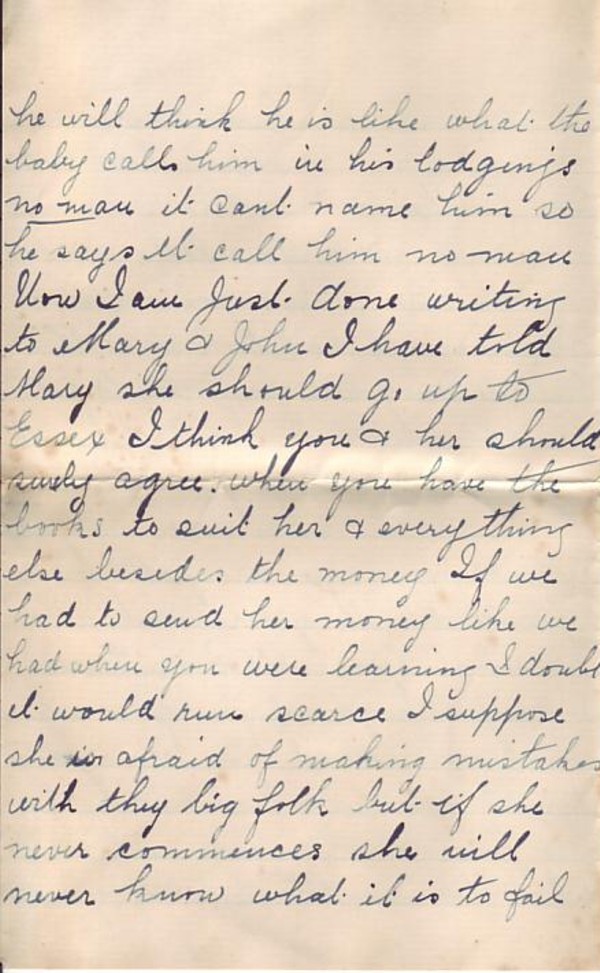 he will think he is like what the
baby calls him in his lodgings
no man it cant name him so
he says Il call him no man
Now I am Just done writing
to Mary & John I have told
Mary she should go up to
Essex I think you & her should
surely agree. when you have the
books to suit her & everything
else besides the money If we
had to send her money like we
had when you were learning I doubt
it would run scarce I suppose
she is afraid of making mistakes
with they big folk but if she
never commences she will
never know what it is to fail